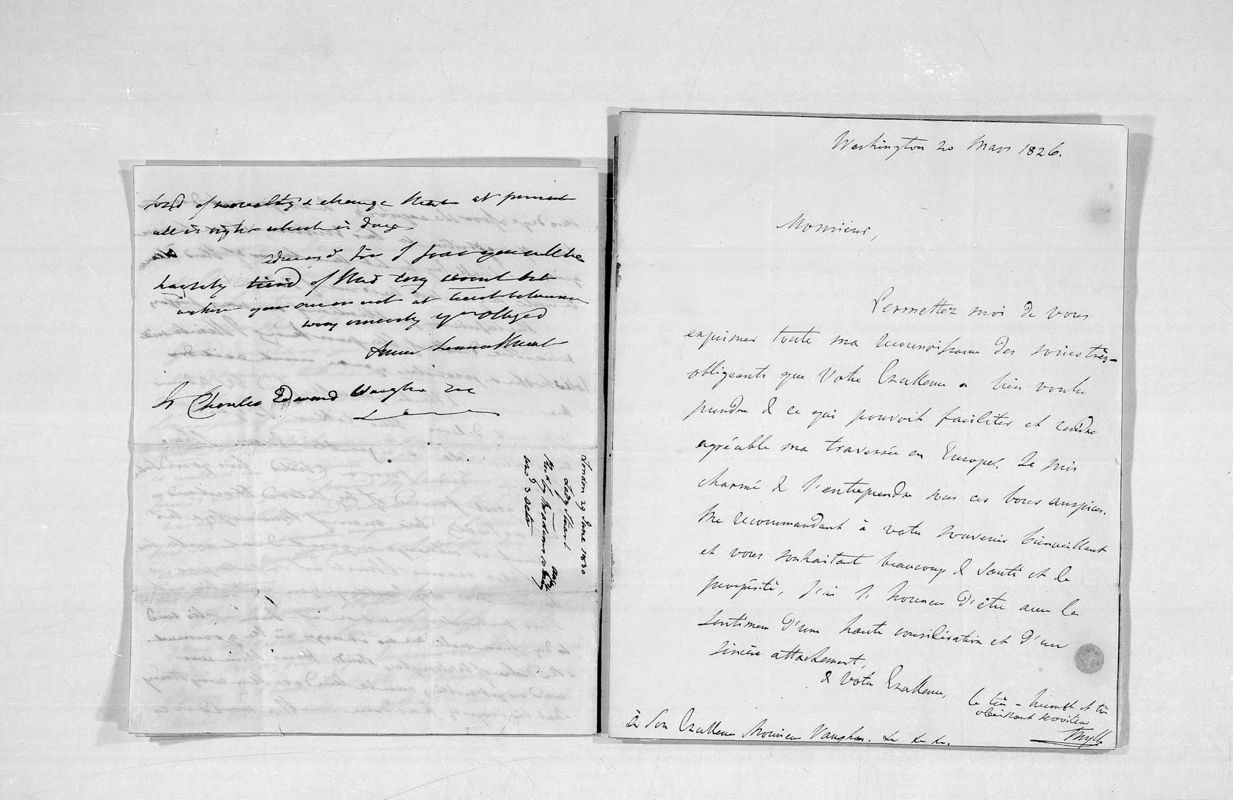 fond of novelty & change that at present
all is right which is doing
of I fear you will be
heartily tired of this long
when you once
very sincerely yr obliged
Sr Charles Edward Vaughan
London 29 June 1830
Lady Stuart
and 3
Washington 20 Mars 1826.
Monsieur,
Permettez moi de vous
exprimer toute ma reconnoissance des soins très-
obligeants que Votre Excellence a bien voulu
prendre à ce qui pouvoit faciliter et rendre
agréable ma traversée en Europe. Je suis
charmé de l'entreprendre sous ces bons auspices.
Me recommandant à votre souvenir bienveillant
et vous souhaitant beaucoup de santé et de
prospérité, j'ai l'honneur d'être avec les
sentimens d'une haute considération et d'un
sincère attachement,
de Votre Excellence,
le très-humble et très
obéissant serviteur
à Son Excellence Monsieur Vaughan.